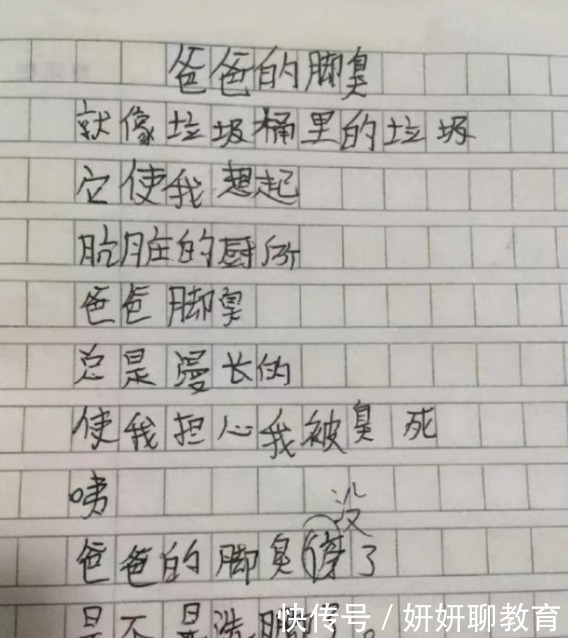 爸爸的脚臭
就像垃圾桶里的垃圾
它使我想起
肮脏的厨所
爸爸脚臭
总是漫长的
使我担心我被臭死
咦
没
爸爸的脚臭停了
是不是洗脚
快传号 / 妍妍聊教育